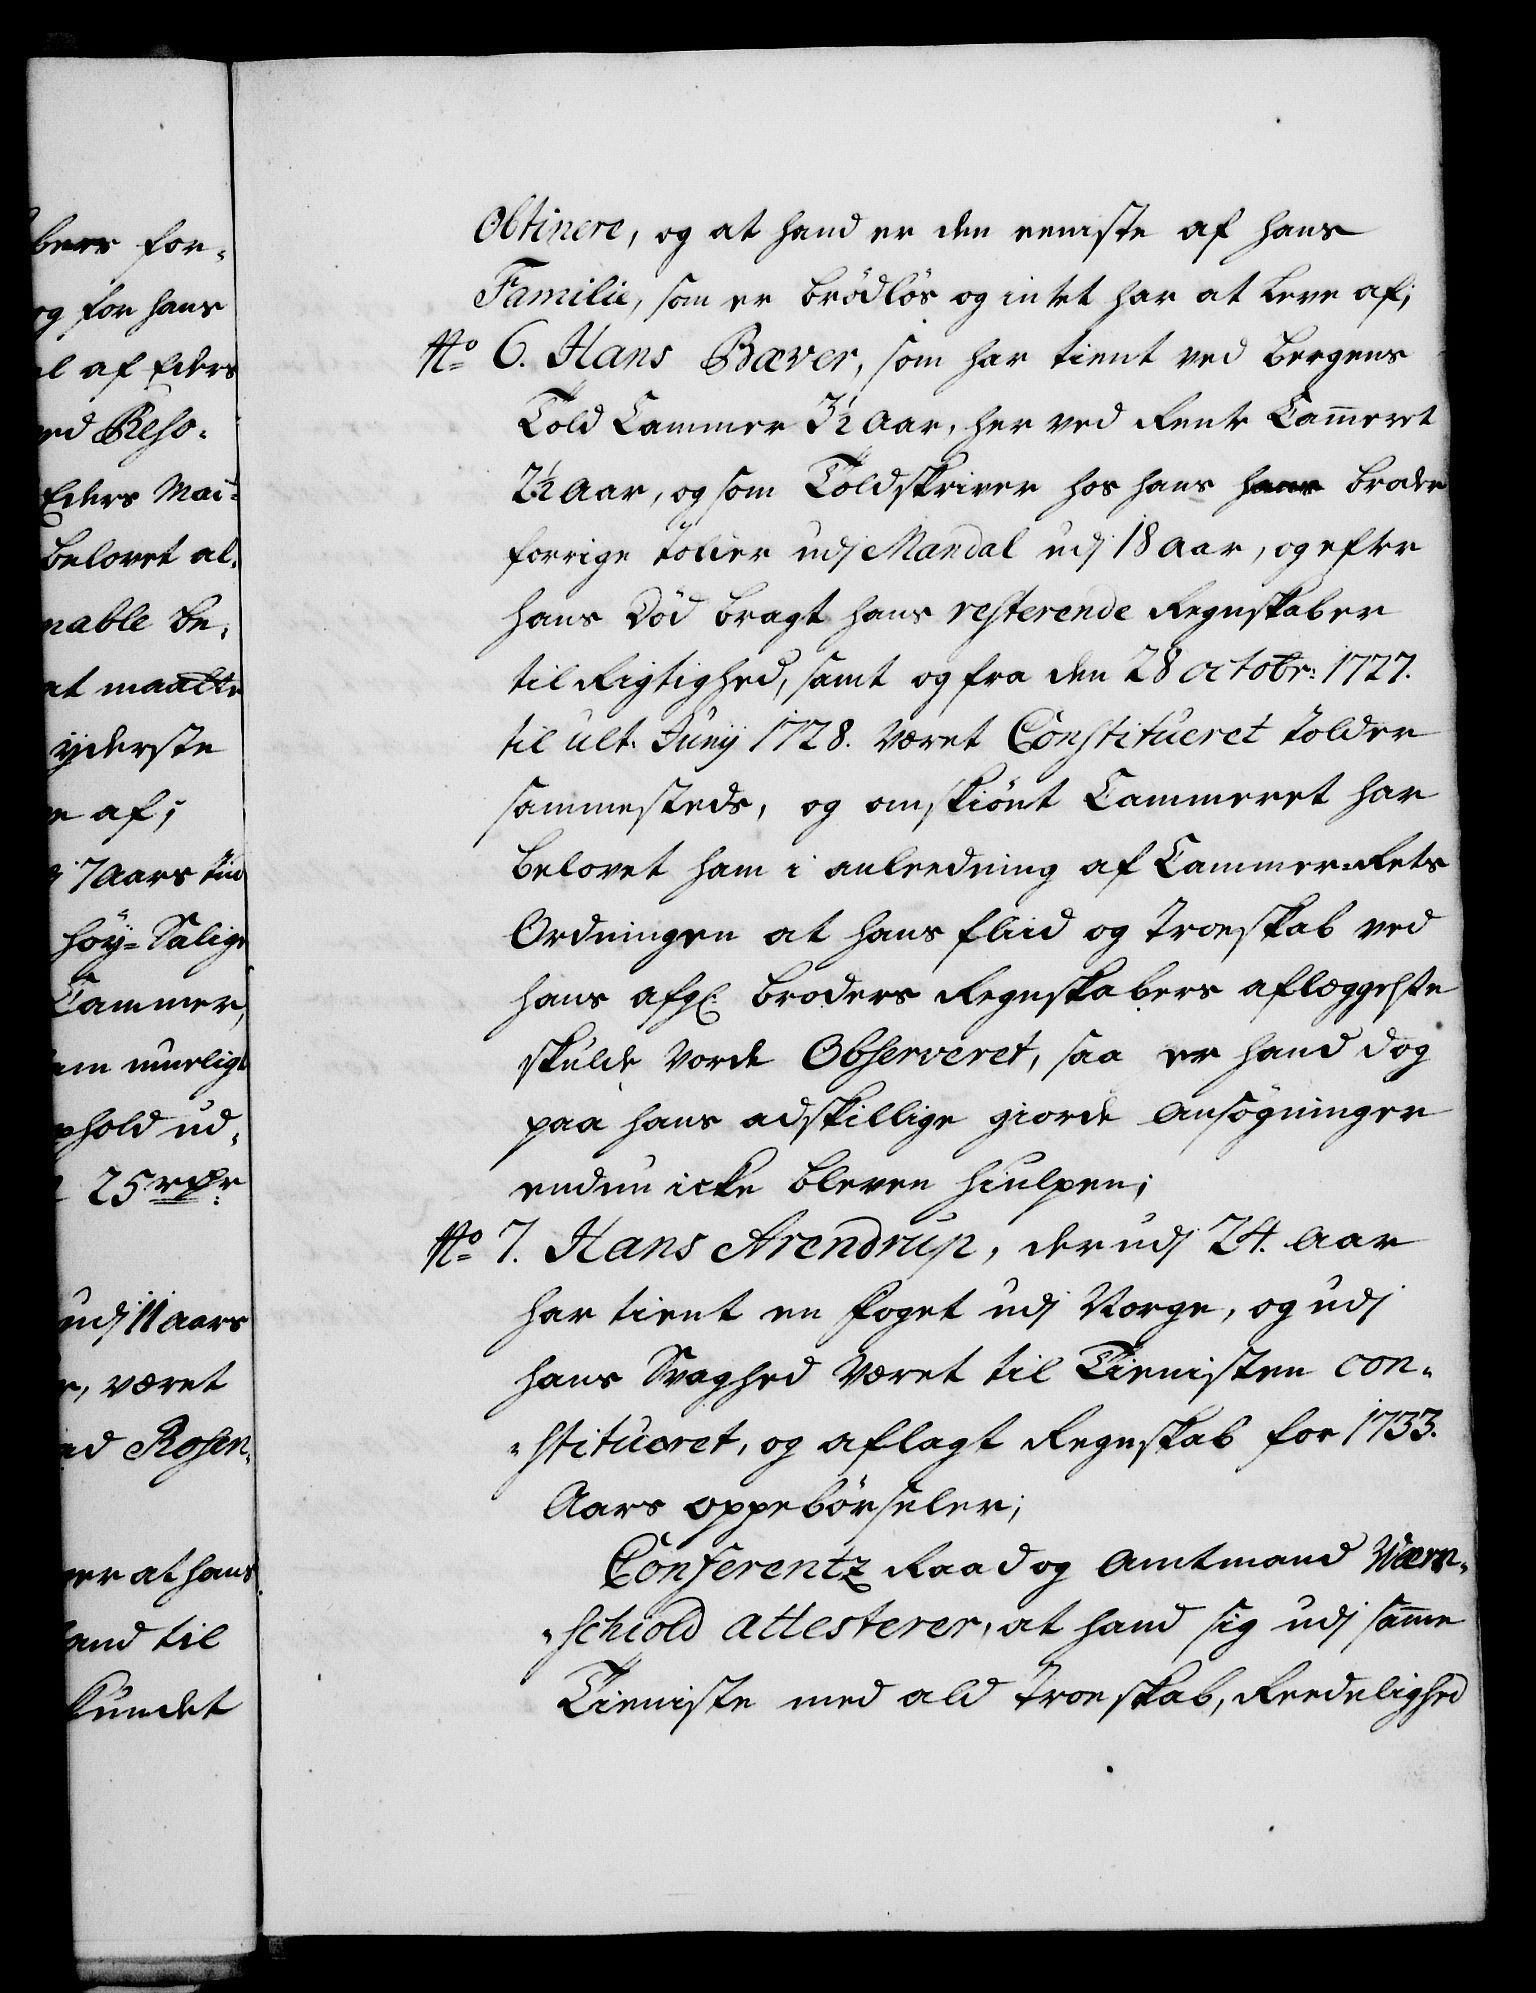 bers for-
og for hans
af Eders
Reso-
Eders Mai-
belovet al-
nable be-
at maatte
yderste
af;
7 Aars tiid
høy-Salige
Cammer,
muelig
phold ud-
25 rdr
udj 11 Aars
, været
Rosen-
er at hans
hand til
kundet
Obtinere, og at hand er den eeniste af hans
Familie, som er brødløs og intet har at leve af;
No 6. Hans Bæver, som har tient ved Bergens
Told Cammer 3½ Aar, her ved Rente Cam̅eret
2½ Aar, og som Toldskriver hos hans hans broder
forrige tolder udj Mandal udj 18 Aar, og efter
hans Død bragt hans resterende Regnskaber
til Rigtighed, samt og fra den 28 octobr: 1727.
til ult. Junij 1728. været Constitueret tolder
sammesteds, og omskiønt Cammeret har
belovet ham i anleedning af Cammer-Rets
Ordningen at hans fliid og Troeskab ved
hans afgl: broders Regnskabers aflæggelse
skulde vorde Observeret, saa er hand dog
paa hans adskillige giorde Ansøgninger
endnu icke bleven hiulpen;
No 7. Hans Arendrup, der udj 24. Aar
har tient en foget udj Norge, og udj
hans Svaghed været til Tienisten con-
-stitueret, og aflagt Regnskab for 1733.
Aars oppebørseler;
Conferentz Raad og Amtmand Wærn-
-schiold attesterer, at hand sig udj sam̅e
Tieniste med ald Troeskab, Reedelighed